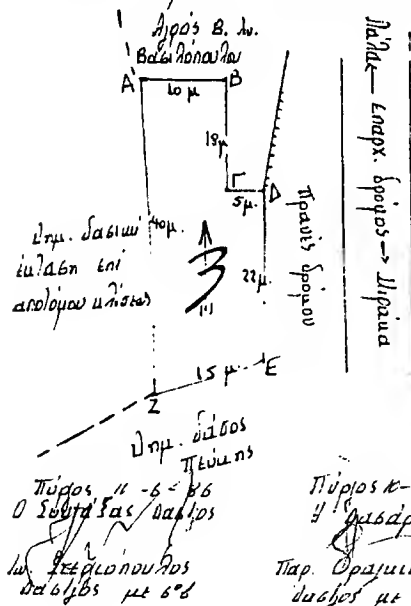 Αγρός Β. Ιω.
Βασιλόπουλου
Α Β
10 μ
18 μ
Γ Δ
5 μ.
πρανές δρόμου
Πάλαι ← επαρχ. δρόμος → Μιράκα
Δημ. δασική
έκταση επί
αποτόμου κλίσεως
40 μ.
3
22 μ.
15 μ.
Ε
Ζ
Δημ. δάσος
πεύκης
Πύργος 11-6-86
Ο Συντάξας δασ/γος
Ιω. Στεργιόπουλος
δασ/γος με
Πύργος
Παρ.
δασ/γος με